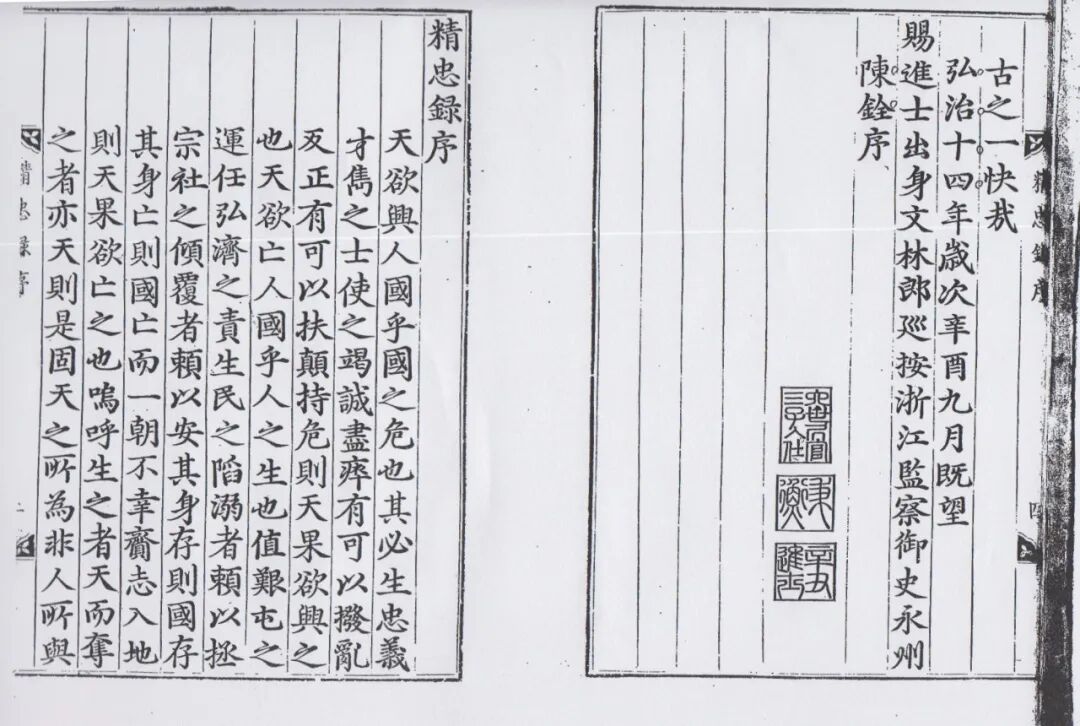 古之一快哉
弘治十四年歲次辛酉九月既望
賜進士出身文林郎廵按浙江監察御史永州
陳銓序
精忠録序
四
辛丑
進士
精忠録序
天欲興人國乎國之危也其必生忠義
才雋之士使之竭誠盡瘁有可以撥亂
反正有可以扶顛持危則天果欲興之
也天欲亡人國乎人之生也值艱屯之
運任弘濟之責生民之陷溺者頼以拯
宗社之傾覆者頼以安其身存則國存
其身亡則國亡而一朝不幸齎志入地
則天果欲亡之也嗚呼生之者天而奪
之者亦天則是固天之所為非人所與
精忠録序
一